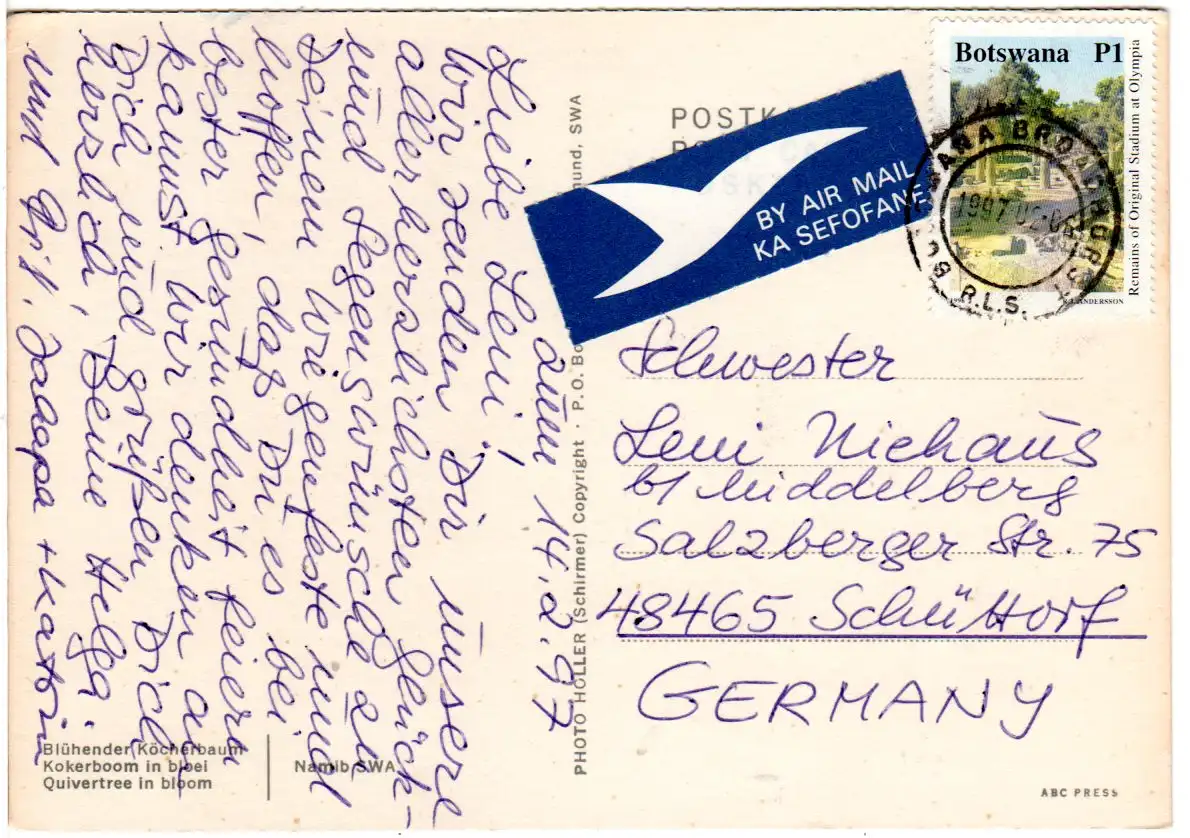 zum 14.2.97
Liebe Leni,
wir senden Dir unsere
allerherzlichsten Glück-
und Segenswünsche zu
Deinem Wiegenfeste und
hoffen, daß Du es bei
bester Gesundheit feiern
kannst. Wir denken an
Dich und grüßen Dich
herzlich, Deine Helga.
und Gril, Jaapa + Katrin
Blühender Köcherbaum
Kokerboom in bloei
Quivertree in bloom
Namib SWA
PHOTO HOLLER (Schirmer) Copyright · P.O. Bo mund, SWA
POSTK
BY AIR MAIL
KA SEFOFANE
Botswana P1
Remains of Original Stadium at Olympia
1997
R.L.S.
Schwester
Leni Niehaus
b/ Middelberg
Salzberger Str. 75
48465 Schüttorf
GERMANY
ABC PRESS